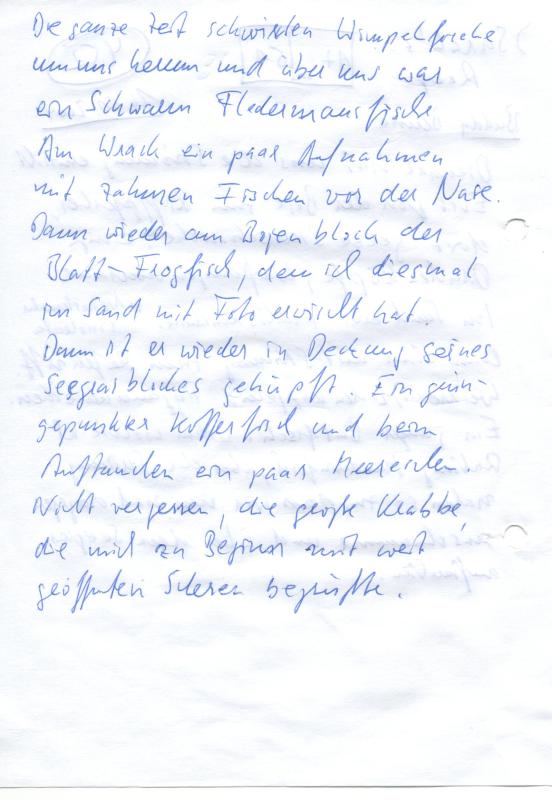 Die ganze Zeit schwirrten Wimpelfische
um uns herum und über uns war
ein Schwarm Fledermausfische
Am Wrack ein paar Aufnahmen
mit zahmen Fischen vor der Nase.
Dann wieder am Bojenblock der
Blatt-Frogfisch, den ich diesmal
im Sand mit Foto erwischt hat.
Dann ist er wieder in Deckung seines
Seegrasbüschels gehüpft. Ein grün-
gepunkter Kofferfisch und beim
Auftauchen ein paar Meeraale.
Nicht vergessen, die große Krabbe,
die mich zu Beginn mit weit
geöffneten Scheren begrüßte.